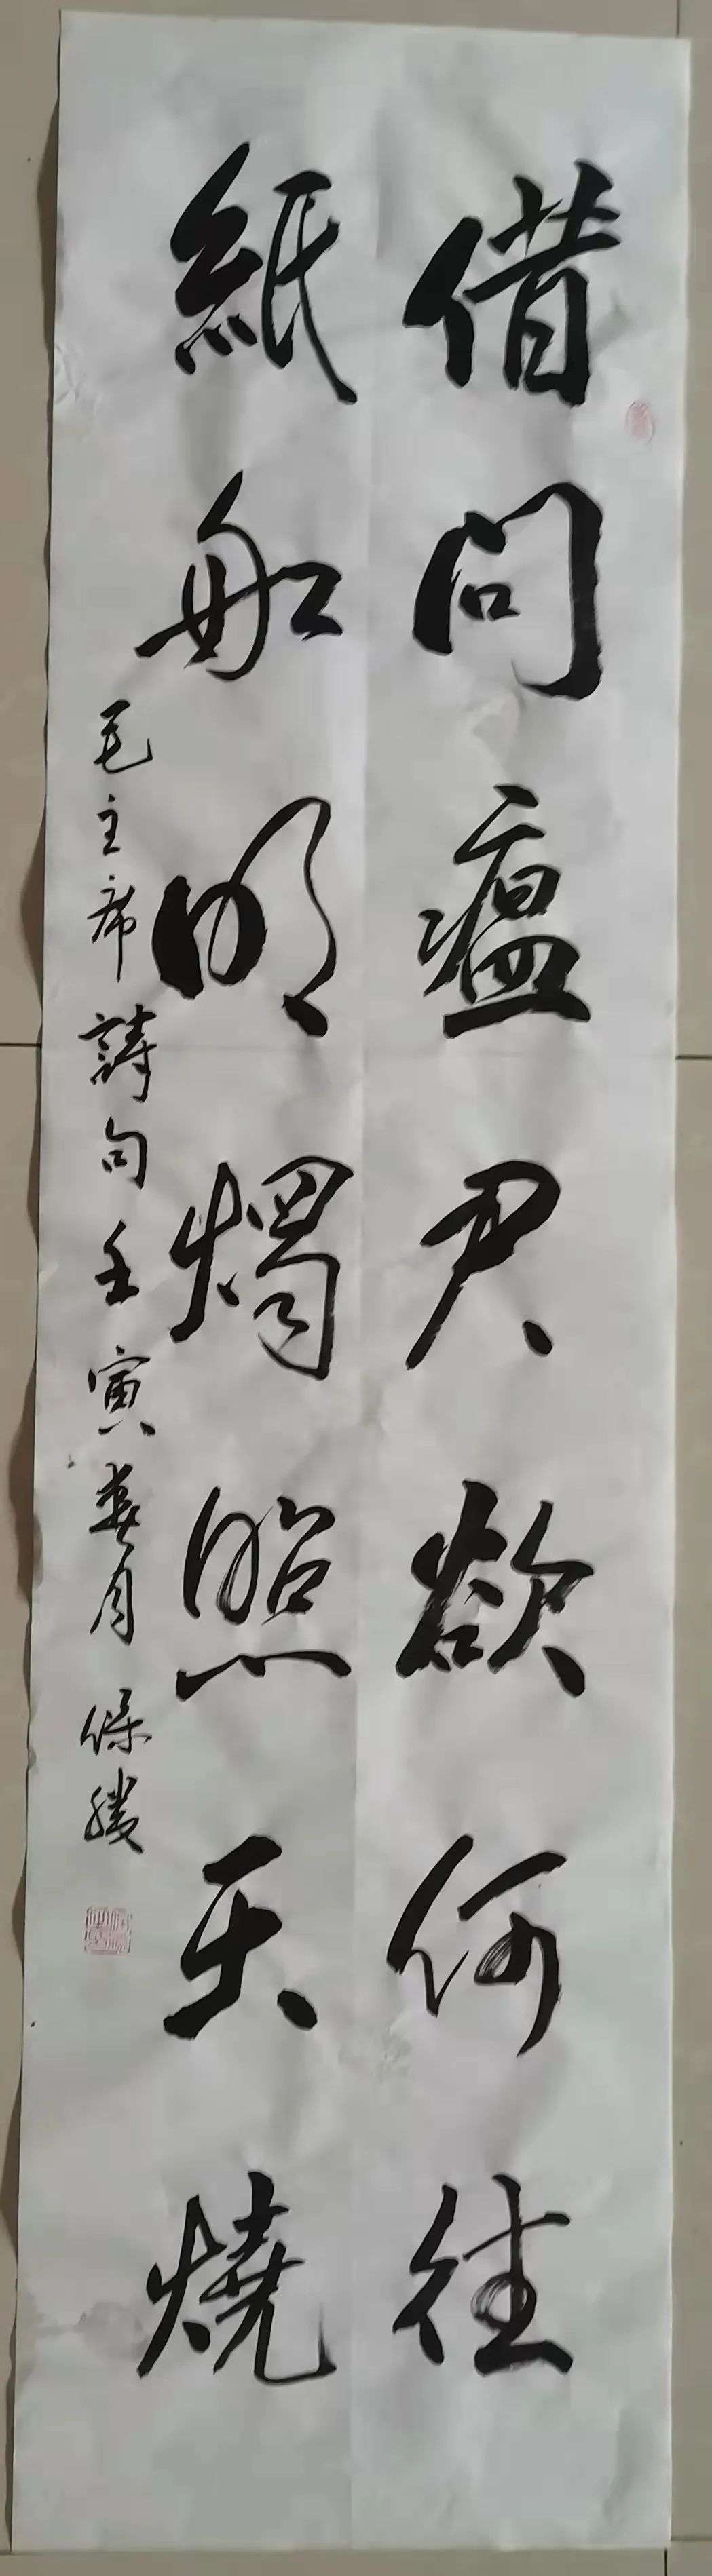 借问瘟君欲何往
紙船明燭照天燒
毛主席詩句壬寅春月保勝